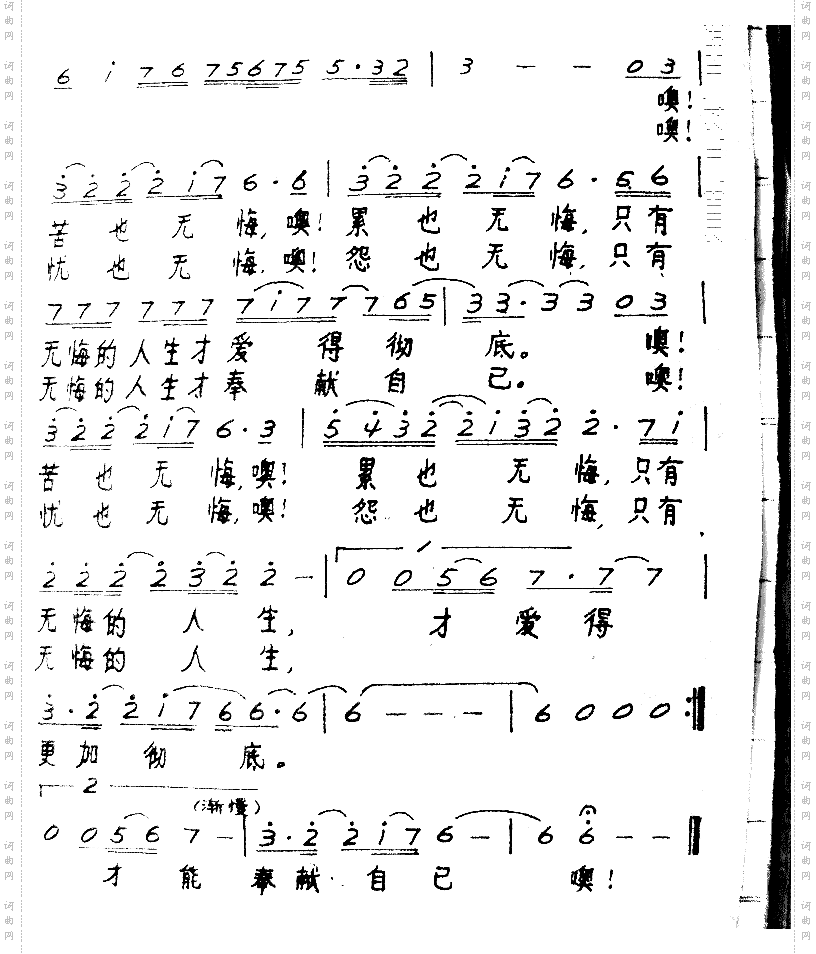 6 i 7 6 7 5 6 7 5 5 · 3 2 | 3 — — 0 3 |
噢!
噢!
3 2 2 2 i 7 6 · 6 | 3 2 2 2 i 7 6 · 5 6 |
苦 也 无 悔, 噢! 累 也 无 悔, 只有
忧 也 无 悔, 噢! 怨 也 无 悔, 只有
7 7 7 7 7 7 7 i 7 7 7 6 5 | 3 3 · 3 3 0 3 |
无悔的人生才爱 得 彻 底。 噢!
无悔的人生才奉 献 自 己。 噢!
3 2 2 2 i 7 6 · 3 | 5 4 3 2 2 i 3 2 2 · 7 i |
苦 也 无 悔, 噢! 累 也 无 悔, 只有
忧 也 无 悔, 噢! 怨 也 无 悔, 只有
1
2 2 2 2 3 2 2 — | 0 0 5 6 7 · 7 7 |
无悔的 人 生, 才 爱 得
无悔的 人 生,
3 · 2 2 i 7 6 6 · 6 | 6 — — — | 6 0 0 0 :‖
更 加 彻 底。
2
(渐慢)
0 0 5 6 7 — | 3 · 2 2 i 7 6 — | 6 6 — — ‖
才 能 奉 献 自 己 噢!
词曲网